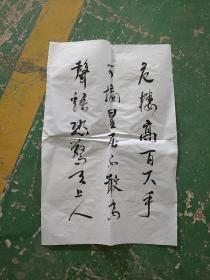 危樓高百尺手
可摘星辰不敢高
聲語恐驚天上人